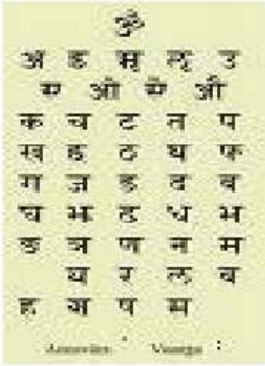 ॐ
अ इ ऋ ऌ उ
ए ओ ऐ औ
क च ट त प
ख छ ठ थ फ
ग ज ड द ब
घ झ ढ ध भ
ङ ञ ण न म
य र ल व
ह श ष स
Visarga :